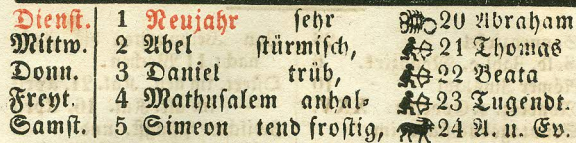 Dienst. 1 Neujahr sehr 20 Abraham
Mittw. 2 Abel stürmisch, 21 Thomas
Donn. 3 Daniel trüb, 22 Beata
Freyt. 4 Mathusalem anhal- 23 Tugendt.
Samst. 5 Simeon tend frostig, 24 A. u. Ev.